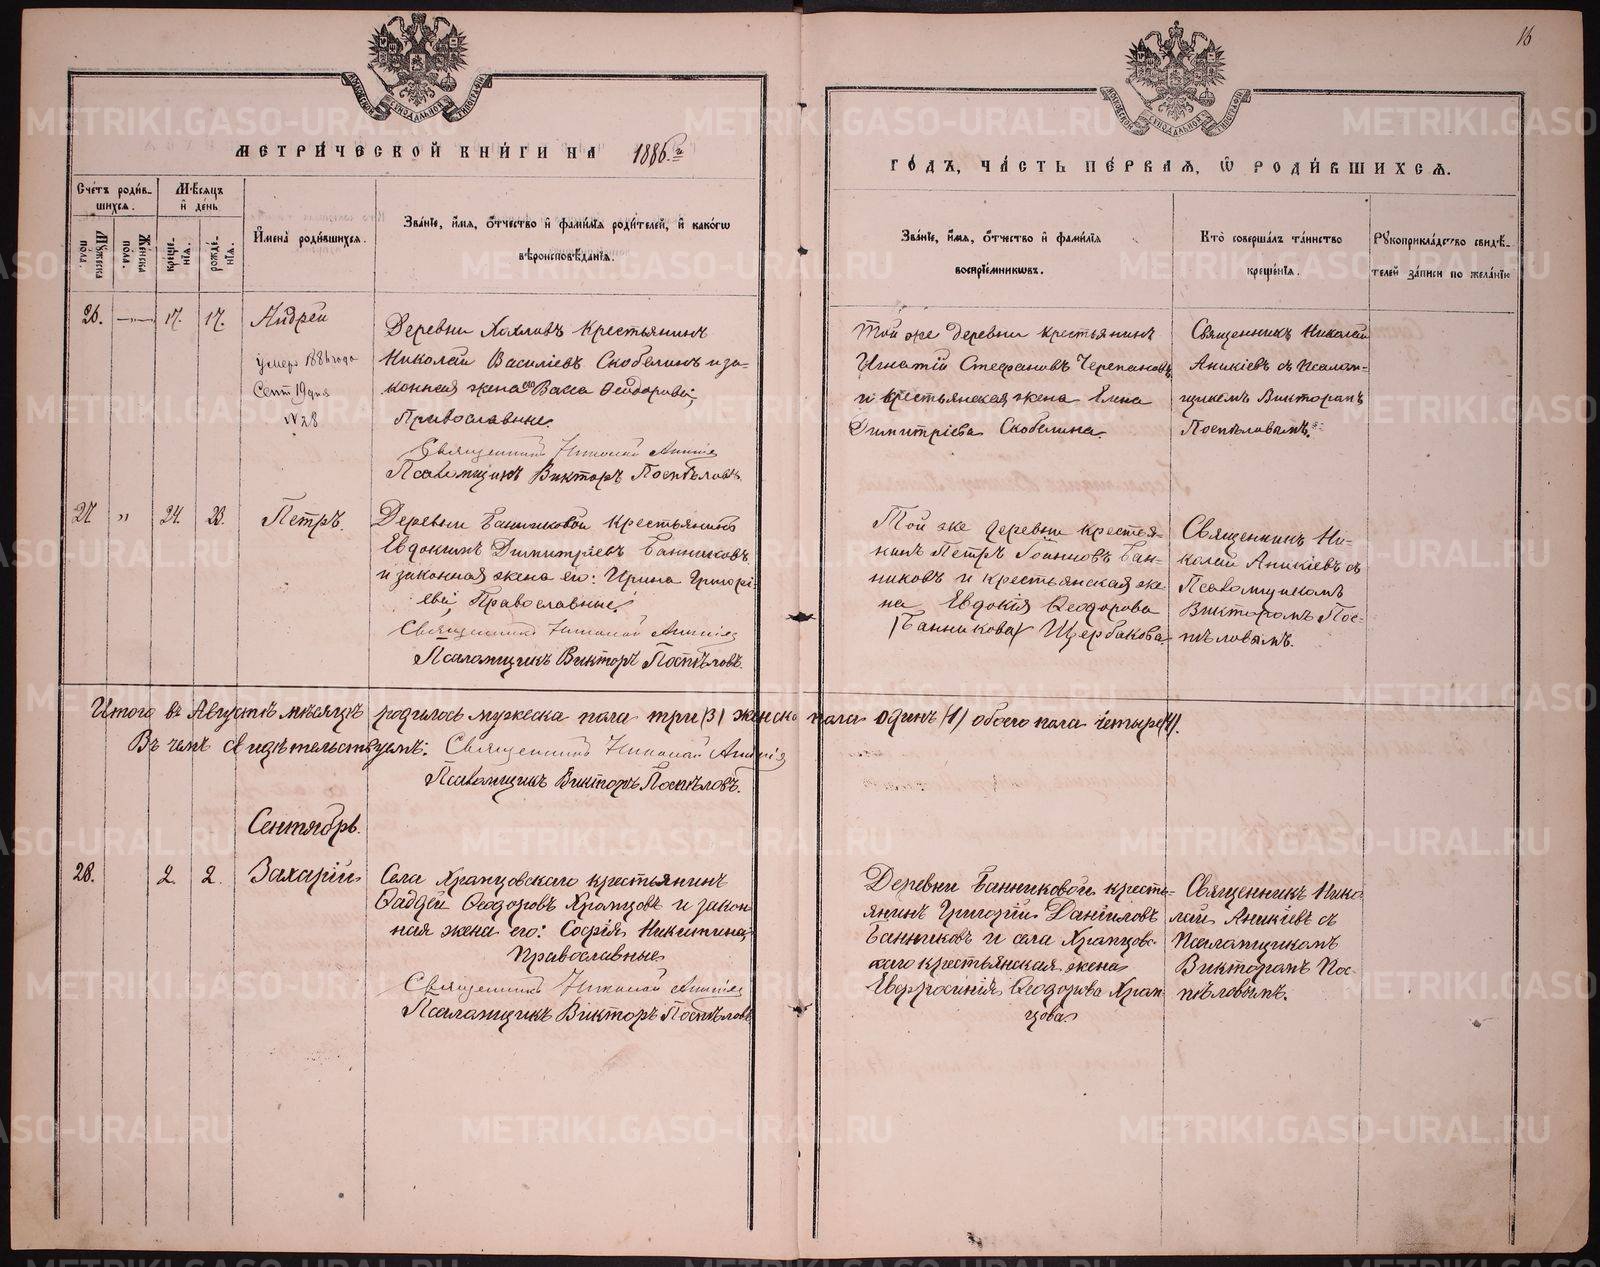 16
МЕТРИ́ЧЕСКОЙ КНИ́ГИ НА 1886.й
ГО́ДЪ, ЧА́СТЬ ПЕ́РВАЯ, Ѿ РОДИ́ВШИХСЯ.
Сче́тъ роди́в-
шихся.
Му́жеска пола.
Же́нска пола.
Мѣ́сяцъ
и҆ де́нь
креще́-
нїя.
рожде́-
нїя.
И҆мена̀ роди́вшихся.
Зва́нїе, и҆́мя, ѻ҆́тчество и҆ фами́лїя роди́телей, и҆ како́гѡ
вѣроисповѣ́данїя.
Зва́нїе, и҆́мя, ѻ҆́тчество и҆ фами́лїя
воспрїе́мникѡвъ.
Кто̀ соверша́лъ та́инство
креще́нїя.
Рꙋкоприкла́дство свидѣ́-
телей за́писи по жела́нїю
26. —„— 17. 17. Андрей
умеръ 1886 года
Сент 19 дня
№ 28
Деревни Хохловъ Крестьянинъ
Николай Василіевъ Скобелинъ и за-
конная жена его Васса Ѳеодорова,
Православные.
Священникъ Николай Аникіевъ
Псаломщикъ Викторъ Поспѣловъ
Той же деревни крестьянинъ
Игнатій Стефановъ Черепановъ
и крестьянская жена Елена
Димитріева Скобелина.
Священникъ Николай
Аникіевъ съ Псалом-
щикомъ Викторомъ
Поспѣловымъ.
27 „ 24. 23. Петръ.
Деревни Банниковой Крестьянинъ
Евдокимъ Димитріевъ Банниковъ
и законная жена его: Ирина Григорі-
ева, Православные.
Священникъ Николай Аникіевъ
Псаломщикъ Викторъ Поспѣловъ.
Той же деревни крестья-
нинъ Петръ Іоанновъ Бан-
никовъ и крестьянская же-
на Евдокія Ѳеодорова
(Банникова) Щербакова.
Священникъ Ни-
колай Аникіевъ съ
Псаломщикомъ
Викторомъ Пос-
пѣловымъ.
Итого въ Августѣ мѣсяцѣ родилось мужеска пола три (3) женска пола одинъ (1) обоего пола четыре (4).
Въ чемъ свидѣтельствуемъ: Священникъ Николай Аникіевъ
Псаломщикъ Викторъ Поспѣловъ.
Сентябрь.
28. 2. 2. Захарій
Села Храмцовскаго крестьянинъ
Ѳаддей Ѳеодоровъ Храмцовъ и закон-
ная жена его: Софія Никитина,
Православные
Священникъ Николай Аникіевъ
Псаломщикъ Викторъ Поспѣловъ
Деревни Банниковой кресть-
янинъ Григорій Даніиловъ
Банниковъ и села Храмцовс-
каго крестьянская жена
Евфросинія Ѳеодорова Храм-
цова
Священникъ Нико-
лай Аникіевъ съ
Псаломщикомъ
Викторомъ Пос-
пѣловымъ.
METRIKI.GASO-URAL.RU